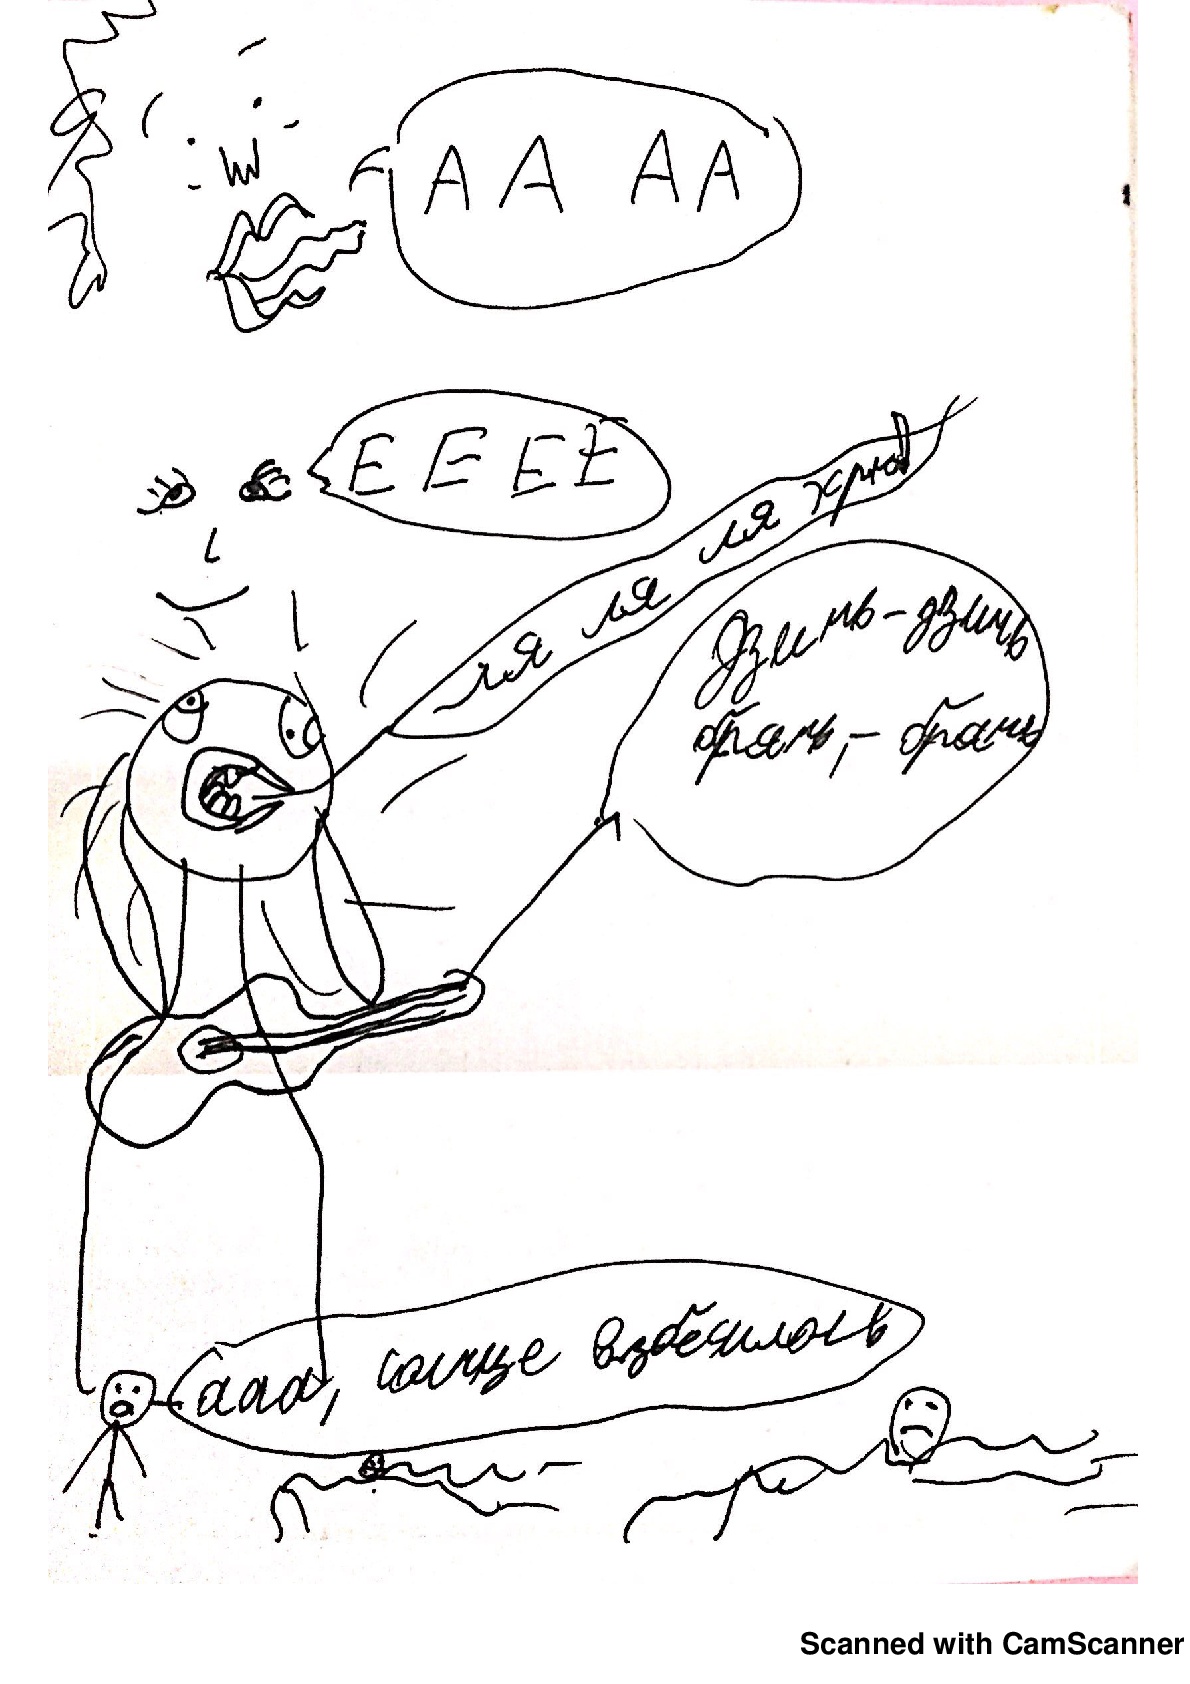 А А А А
Е Е Е Е
ля ля ля хрю
Дзинь-дзинь
брянь,-брань
ааа, солнце взбесилось
Scanned with CamScanner